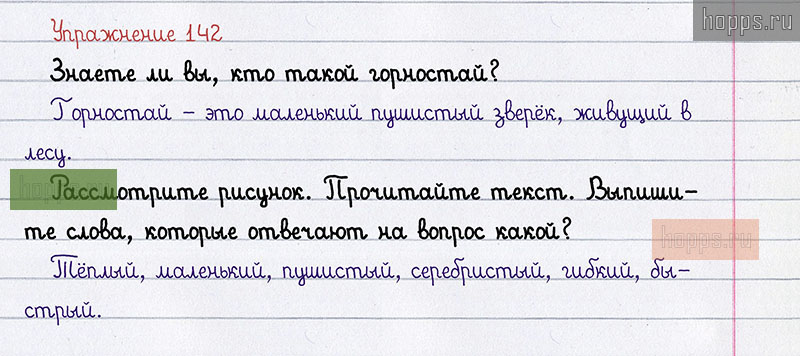 hopps.ru
Упражнение 142
Знаете ли вы, кто такой горностай?
Горностай – это маленький пушистый зверёк, живущий в
лесу.
Рассмотрите рисунок. Прочитайте текст. Выпиши-
те слова, которые отвечают на вопрос какой?
hopps.ru
Тёплый, маленький, пушистый, серебристый, гибкий, бы-
стрый.